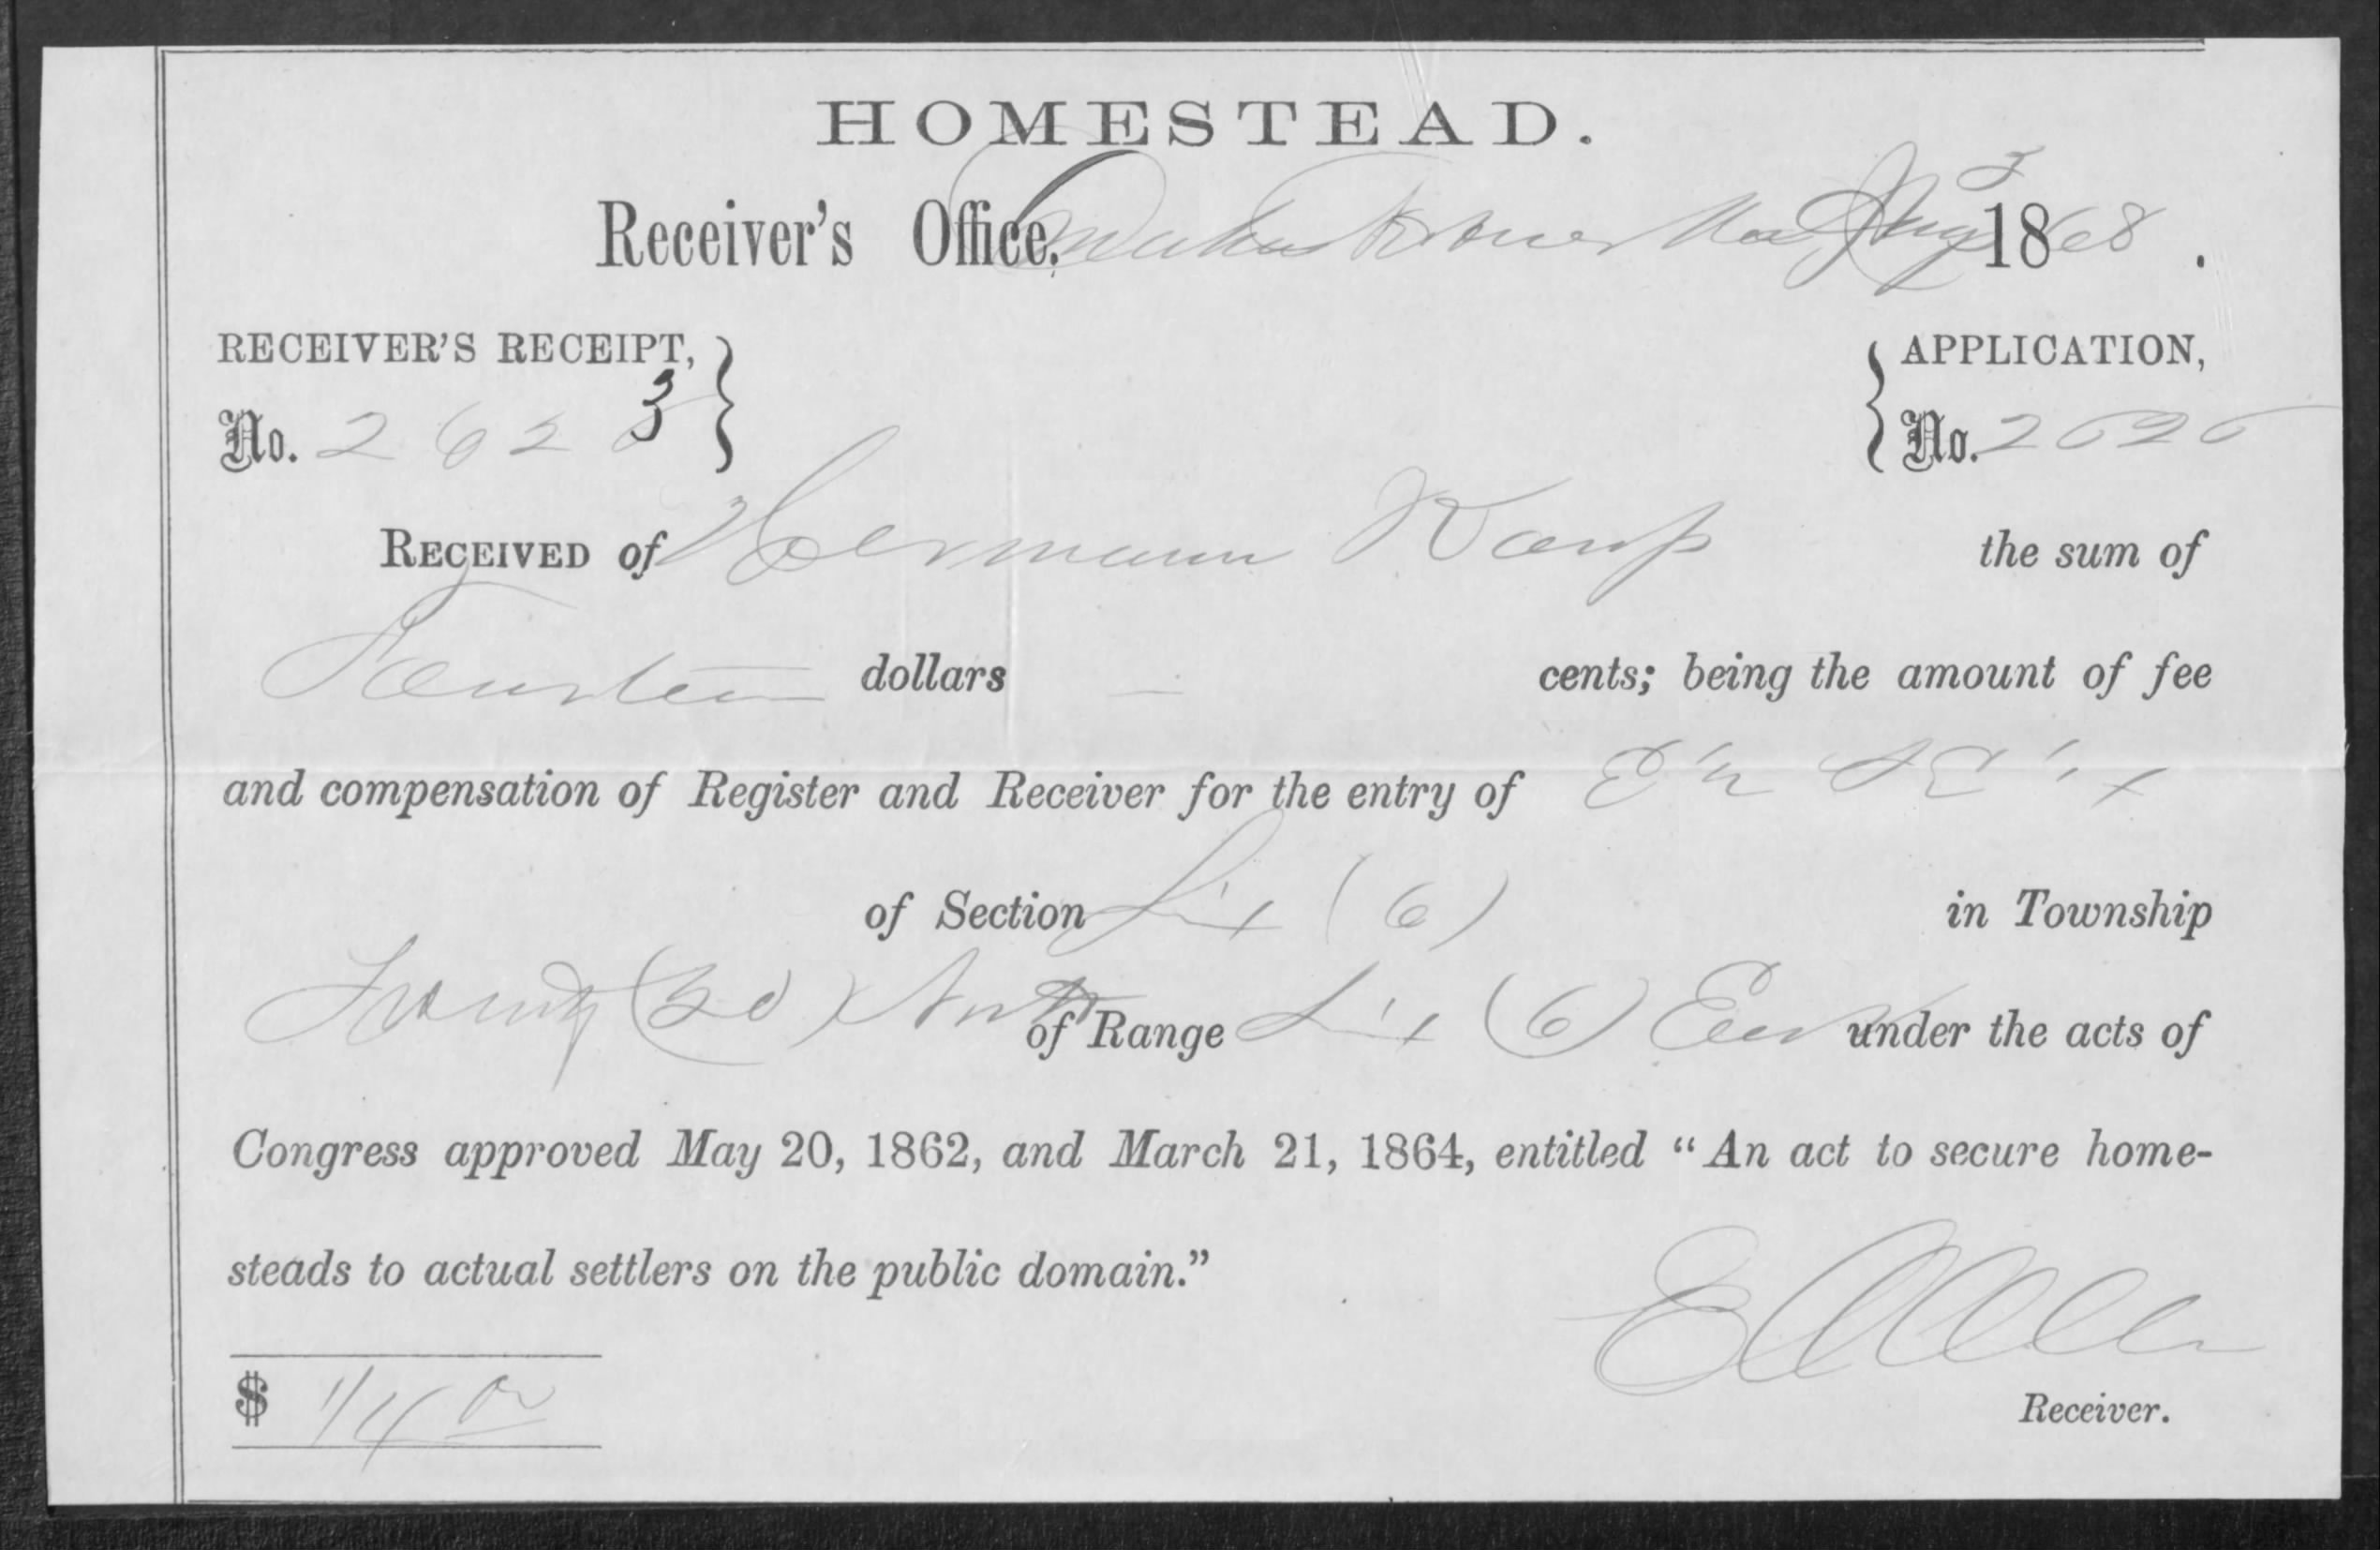 HOMESTEAD.
Receiver's Office. Omaha 3 1868.
RECEIVER'S RECEIPT, APPLICATION,
No. 2623 No.
RECEIVED of Hermann the sum of
Fourteen dollars — cents; being the amount of fee
and compensation of Register and Receiver for the entry of E ½ SE ¼
of Section Six (6) in Township
Twenty (20) North of Range Six (6) East under the acts of
Congress approved May 20, 1862, and March 21, 1864, entitled "An act to secure home-
steads to actual settlers on the public domain."
Receiver.
$ 14 00